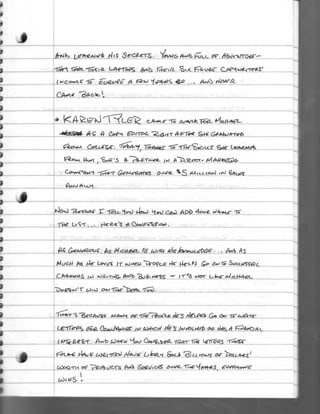 AND, LEARNED HIS SECRETS. YOUNG AND FULL OF ADVENTURE –
THEY TOOK THEIR LAPTOPS AND THEIR SIX FIGURE COPYWRITERS'
INCOMES TO EUROPE A FEW YEARS AGO ... AND NEVER
CAME BACK!
• KAREN TYLER CAME TO WORK FOR MICHAEL
AS A COPY EDITOR RIGHT AFTER SHE GRADUATED
FROM COLLEGE. TODAY, THANKS TO THE SKILLS SHE LEARNED
FROM HIM, SHE'S A PARTNER IN A DIRECT-MARKETING
COMPANY THAT GENERATES OVER $5 MILLION IN SALES
ANNUALLY.
NOW BEFORE I TELL YOU HOW YOU CAN ADD YOUR NAME TO
THE LIST... HERE'S A CONFESSION.
AS GENEROUS AS MICHAEL IS WITH HIS KNOWLEDGE ... AND AS
MUCH AS HE LOVES IT WHEN PEOPLE HE HELPS GO ON TO SUCCESSFUL
CAREERS IN WRITING AND BUSINESS – IT'S NOT LIKE MICHAEL
DOESN'T WIN ON THE DEAL TOO.
THAT'S BECAUSE MANY OF THE PEOPLE HE'S HELPED GO ON TO WRITE
LETTERS FOR COMPANIES IN WHICH HE'S INVOLVED OR HAS A FINANCIAL
INTEREST. AND WHEN YOU CONSIDER THAT THE LETTERS THESE
FOLKS HAVE WRITTEN HAVE LIKELY SOLD BILLIONS OF DOLLARS'
WORTH OF PRODUCTS AND SERVICES OVER THE YEARS, EVERYONE
WINS!